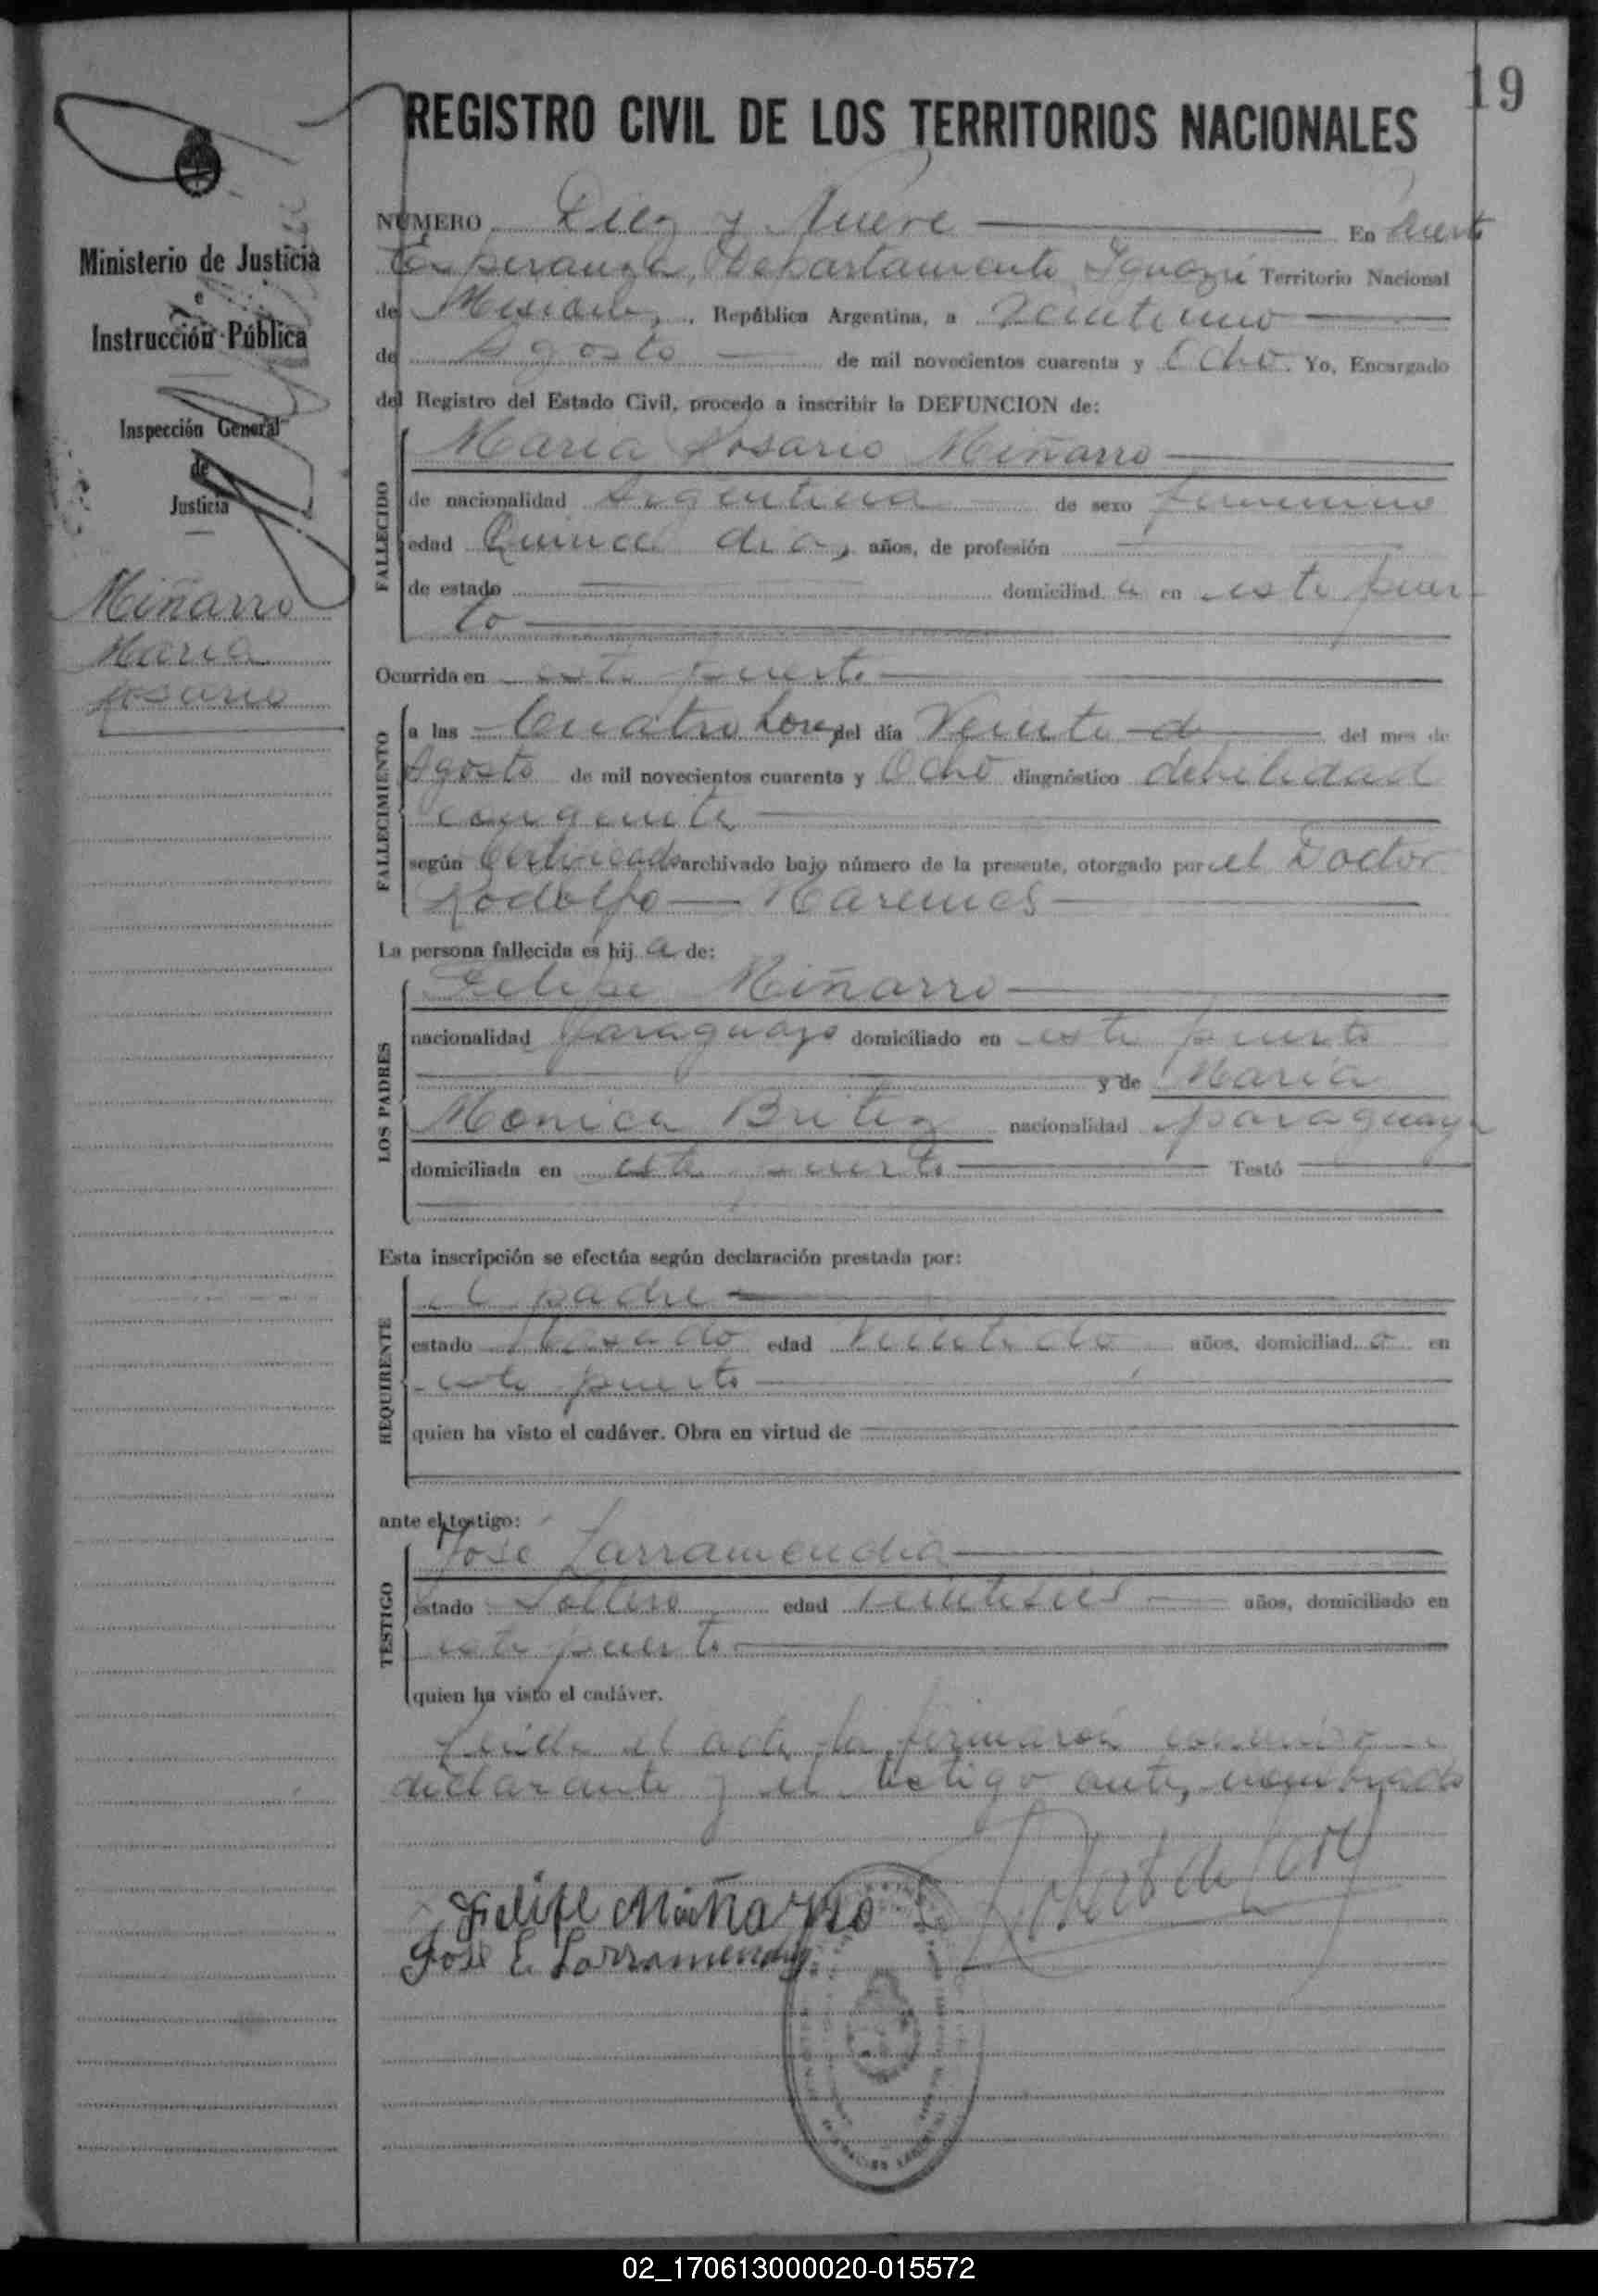 19
REGISTRO CIVIL DE LOS TERRITORIOS NACIONALES
Ministerio de Justicia
e
Instrucción Pública
Inspección General
de
Justicia
Miñarro
Maria
Rosario
NUMERO Diez y Nueve En Puerto
Esperanza, Departamento Iguazú Territorio Nacional
de Misiones, República Argentina, a Veintiuno
de Agosto de mil novecientos cuarenta y Ocho. Yo, Encargado
del Registro del Estado Civil, procedo a inscribir la DEFUNCION de:
FALLECIDO
Maria Rosario Miñarro
de nacionalidad Argentina de sexo femenino
edad Quince dias, años, de profesión
de estado domiciliad a en este puer-
to
Ocurrida en este puerto
FALLECIMIENTO
a las Cuatro horas del día Veinte del mes de
Agosto de mil novecientos cuarenta y Ocho diagnóstico debilidad
congenita
según Certificado archivado bajo número de la presente, otorgado por el Doctor
Rodolfo
La persona fallecida es hij a de:
LOS PADRES
Felipe Miñarro
nacionalidad paraguayo domiciliado en este puerto
y de Maria
Monica Britez nacionalidad paraguaya
domiciliada en este puerto Testó
Esta inscripción se efectúa según declaración prestada por:
REQUIRENTE
el padre
estado edad años, domiciliad o en
este puerto
quien ha visto el cadáver. Obra en virtud de
ante el testigo:
TESTIGO
José Larramendia
estado Soltero edad Veinteseis años, domiciliado en
este puerto
quien ha visto el cadáver.
Leida el acta, la firmaron conmigo
declarante y el testigo antes nombrado
Felipe Miñarro
Jose E. Larramendia
02_170613000020-015572